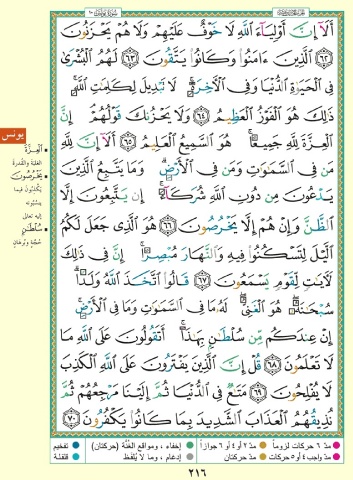 سورة يونس
أَلَآ إِنَّ أَوْلِيَآءَ ٱللَّهِ لَا خَوْفٌ عَلَيْهِمْ وَلَا هُمْ يَحْزَنُونَ
٦٢ ٱلَّذِينَ ءَامَنُوا۟ وَكَانُوا۟ يَتَّقُونَ ٦٣ لَهُمُ ٱلْبُشْرَىٰ
فِى ٱلْحَيَوٰةِ ٱلدُّنْيَا وَفِى ٱلْـَٔاخِرَةِ ۚ لَا تَبْدِيلَ لِكَلِمَـٰتِ ٱللَّهِ ۚ
ذَٰلِكَ هُوَ ٱلْفَوْزُ ٱلْعَظِيمُ ٦٤ وَلَا يَحْزُنكَ قَوْلُهُمْ ۘ إِنَّ
ٱلْعِزَّةَ لِلَّهِ جَمِيعًا ۚ هُوَ ٱلسَّمِيعُ ٱلْعَلِيمُ ٦٥ أَلَآ إِنَّ لِلَّهِ
مَن فِى ٱلسَّمَـٰوَٰتِ وَمَن فِى ٱلْأَرْضِ ۗ وَمَا يَتَّبِعُ ٱلَّذِينَ
يَدْعُونَ مِن دُونِ ٱللَّهِ شُرَكَآءَ ۚ إِن يَتَّبِعُونَ إِلَّا
ٱلظَّنَّ وَإِنْ هُمْ إِلَّا يَخْرُصُونَ ٦٦ هُوَ ٱلَّذِى جَعَلَ لَكُمُ
ٱلَّيْلَ لِتَسْكُنُوا۟ فِيهِ وَٱلنَّهَارَ مُبْصِرًا ۚ إِنَّ فِى ذَٰلِكَ
لَـَٔايَـٰتٍ لِّقَوْمٍ يَسْمَعُونَ ٦٧ قَالُوا۟ ٱتَّخَذَ ٱللَّهُ وَلَدًا ۗ
سُبْحَـٰنَهُۥ ۖ هُوَ ٱلْغَنِىُّ ۖ لَهُۥ مَا فِى ٱلسَّمَـٰوَٰتِ وَمَا فِى ٱلْأَرْضِ ۚ
إِنْ عِندَكُم مِّن سُلْطَـٰنٍۭ بِهَـٰذَآ ۚ أَتَقُولُونَ عَلَى ٱللَّهِ مَا
لَا تَعْلَمُونَ ٦٨ قُلْ إِنَّ ٱلَّذِينَ يَفْتَرُونَ عَلَى ٱللَّهِ ٱلْكَذِبَ
لَا يُفْلِحُونَ ٦٩ مَتَـٰعٌ فِى ٱلدُّنْيَا ثُمَّ إِلَيْنَا مَرْجِعُهُمْ ثُمَّ
نُذِيقُهُمُ ٱلْعَذَابَ ٱلشَّدِيدَ بِمَا كَانُوا۟ يَكْفُرُونَ ٧٠
يونس
ٱلْعِزَّةَ
الغلبة والقدرة
يَخْرُصُونَ
يكذبون فيما
ينسبونه
إليه تعالى
سُلْطَـٰنٍ
حجة وبرهان
مدّ ٦ حركات لزوماً مدّ ٢ أو ٤ أو ٦ جوازاً إخفاء، ومواقع الغُنَّة (حركتان) تفخيم
مدّ واجب ٤ أو ٥ حركات مدّ حركتان إدغام، وما لا يُلفظ قلقلة
٢١٦